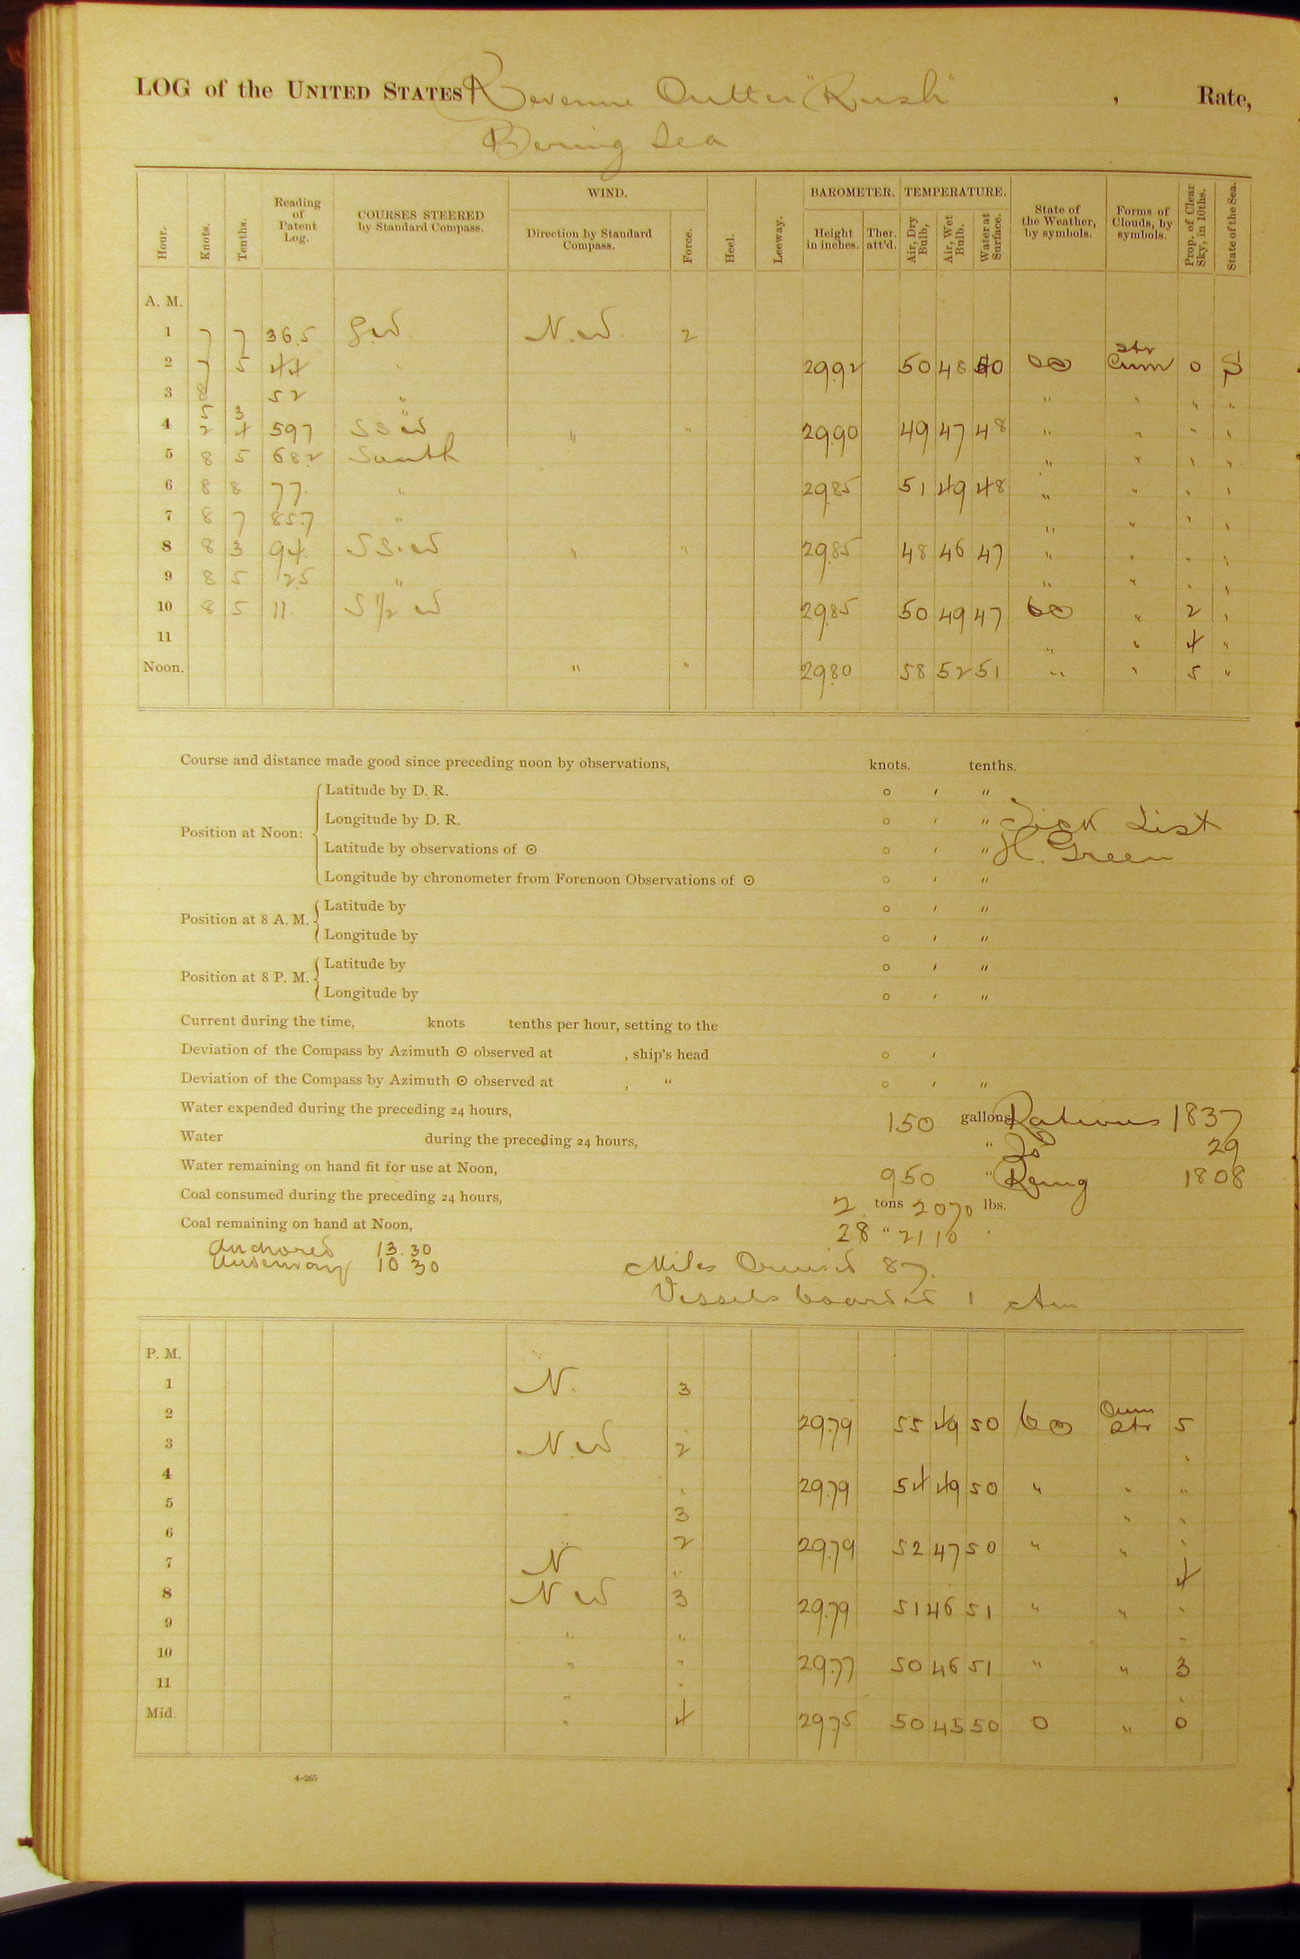 LOG of the UNITED STATES Revenue Cutter "Rush" , Rate,
Bering Sea
Hour. Knots. Tenths. Reading of Patent Log. COURSES STEERED by Standard Compass. WIND. Direction by Standard Compass. Force. Heel. Leeway. BAROMETER. Height in inches. Ther. att'd. TEMPERATURE. Air, Dry Bulb. Air, Wet Bulb. Water at Surface. State of the Weather, by symbols. Forms of Clouds, by symbols. Prop. of Clear Sky, in 10ths. State of the Sea.
A. M.
1 7 7 36.5 N.W. 2
2 7 5 44 29.92 50 48 50 Str Cum 0 S
3 8 52 "
4 5 3 2 4 59.7 SSW " " 29.90 49 47 48 " " " "
5 8 5 68.2 South " " " "
6 8 8 77. " 29.85 51 49 48 " " " "
7 8 7 85.7 " " " " "
8 8 3 94. SS.W " " 29.85 48 46 47 " " " "
9 8 5 2.5 " " " " "
10 8 5 11. S 1/2 W 29.85 50 49 47 bc " 2 "
11 " " 4 "
Noon. " " 29.80 58 52 51 " " 5 "
Course and distance made good since preceding noon by observations, knots. tenths.
Position at Noon:
Latitude by D. R. ° ′ ″
Longitude by D. R. ° ′ ″ Sick List
Latitude by observations of ☉ ° ′ ″ H. Green
Longitude by chronometer from Forenoon Observations of ☉ ° ′ ″
Position at 8 A. M.
Latitude by ° ′ ″
Longitude by ° ′ ″
Position at 8 P. M.
Latitude by ° ′ ″
Longitude by ° ′ ″
Current during the time, knots tenths per hour, setting to the
Deviation of the Compass by Azimuth ☉ observed at , ship's head ° ′
Deviation of the Compass by Azimuth ☉ observed at , " ° ′ ″
Water expended during the preceding 24 hours, 150 gallons Rations 1837
Water during the preceding 24 hours, " Do 29
Water remaining on hand fit for use at Noon, 950 " Remg 1808
Coal consumed during the preceding 24 hours, 2 tons 2070 lbs.
Coal remaining on hand at Noon, 28 " 2110
Anchored 13.30
Underway 10 30
Miles Cruised 87.
Vessels boarded 1 Am
P. M.
1 N. 3
2 29.79 55 49 50 bc Cum Str 5
3 N W 2 "
4 " 29.79 54 49 50 " " "
5 " 3 " "
6 " 2 29.79 52 47 50 " " "
7 N " 4
8 N W 3 29.79 51 46 51 " " "
9 " " "
10 " " 29.77 50 46 51 " " 3
11 " " "
Mid. " 4 29.75 50 45 50 0 " 0
4-265